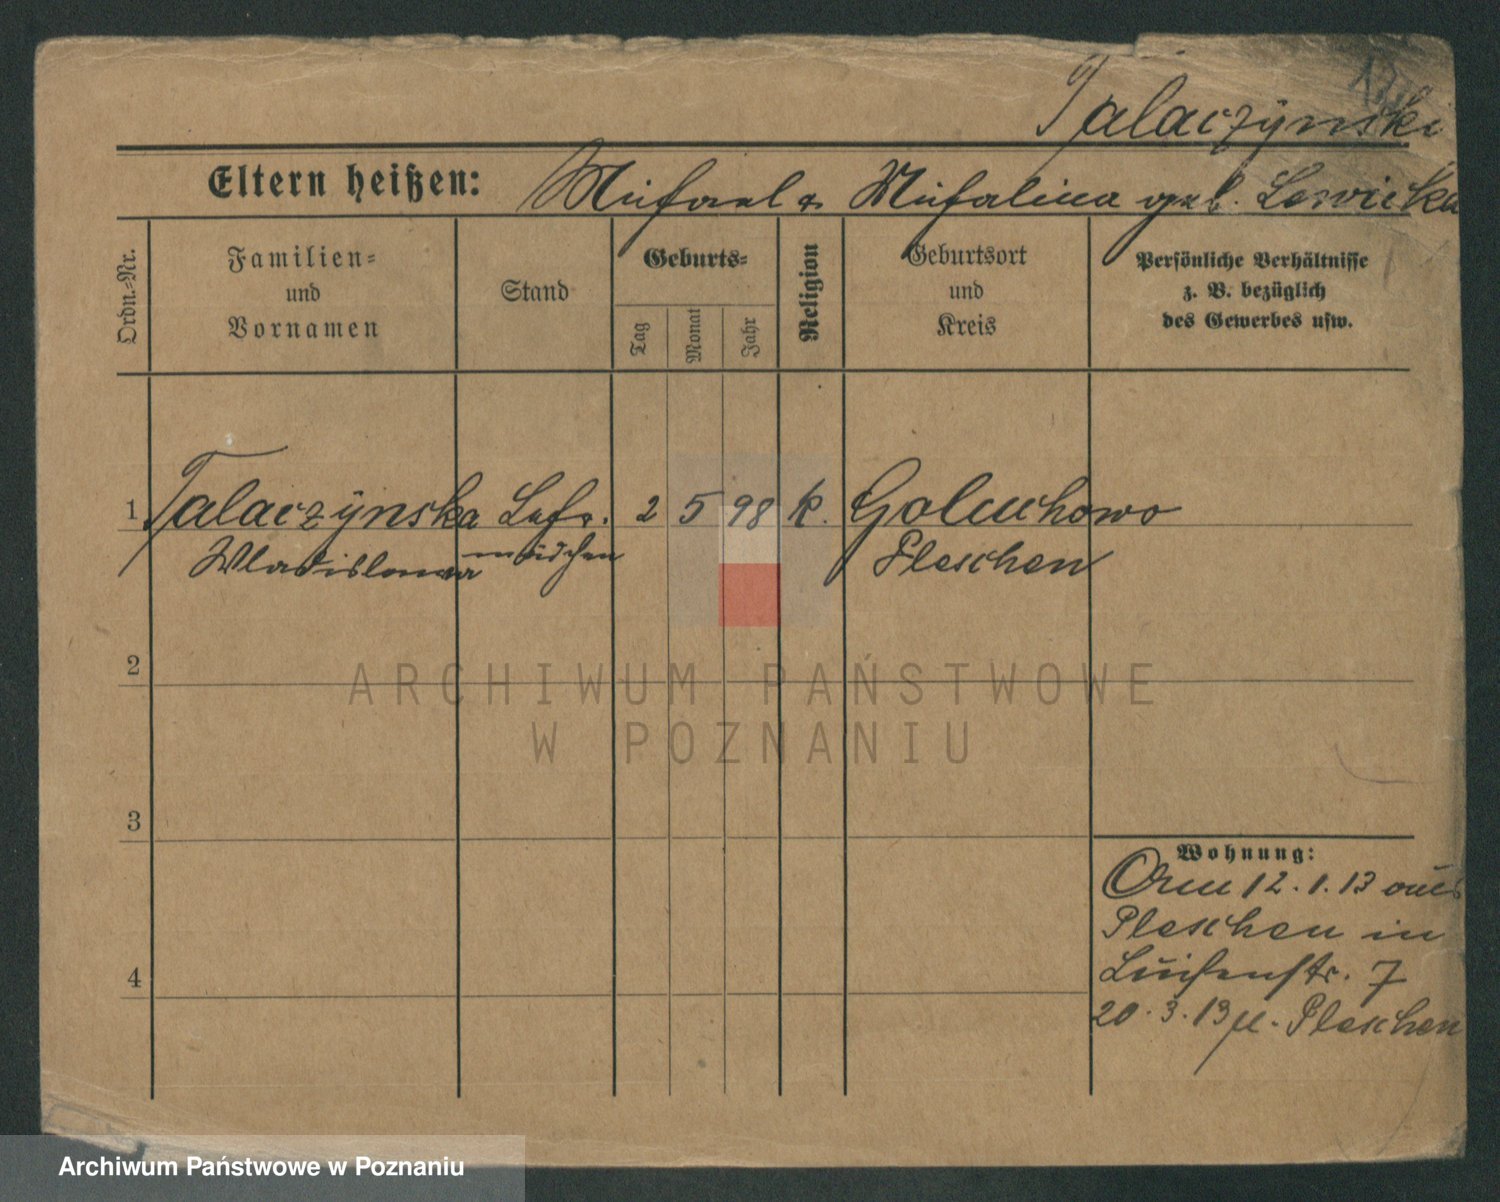 Talaczynski
Eltern heißen: Michael & Michalina geb. Lewicka
Ordn.-Nr.
Familien-
und
Vornamen
Stand
Geburts-
Tag
Monat
Jahr
Religion
Geburtsort
und
Kreis
Persönliche Verhältnisse
z. B. bezüglich
des Gewerbes usw.
1 Talaczynska Lehr. 2 5 98 k. Goluchowo
Wladislawa mädchen Pleschen
2
ARCHIWUM PAŃSTWOWE
W POZNANIU
3
4
Wohnung:
12.1.13 aus
Pleschen in
Luisenstr. 7
20.3.13 n. Pleschen
Archiwum Państwowe w Poznaniu